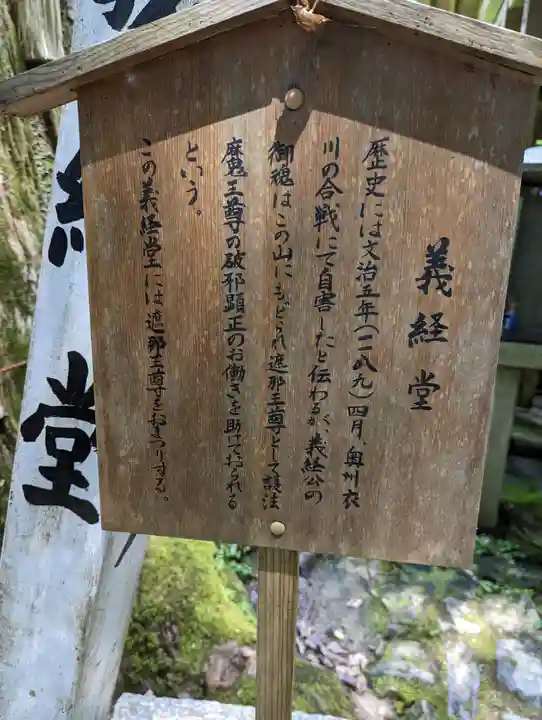 義経堂
歴史には文治五年(一一八九)四月、奥州衣
川の合戦にて自害したと伝わるが、義経公の
御魂はこの山にもどられ遮那王尊として護法
魔王尊の破邪顕正のお働きを助けておられる
という。
この義経堂には遮那王尊をおまつりする。
経堂